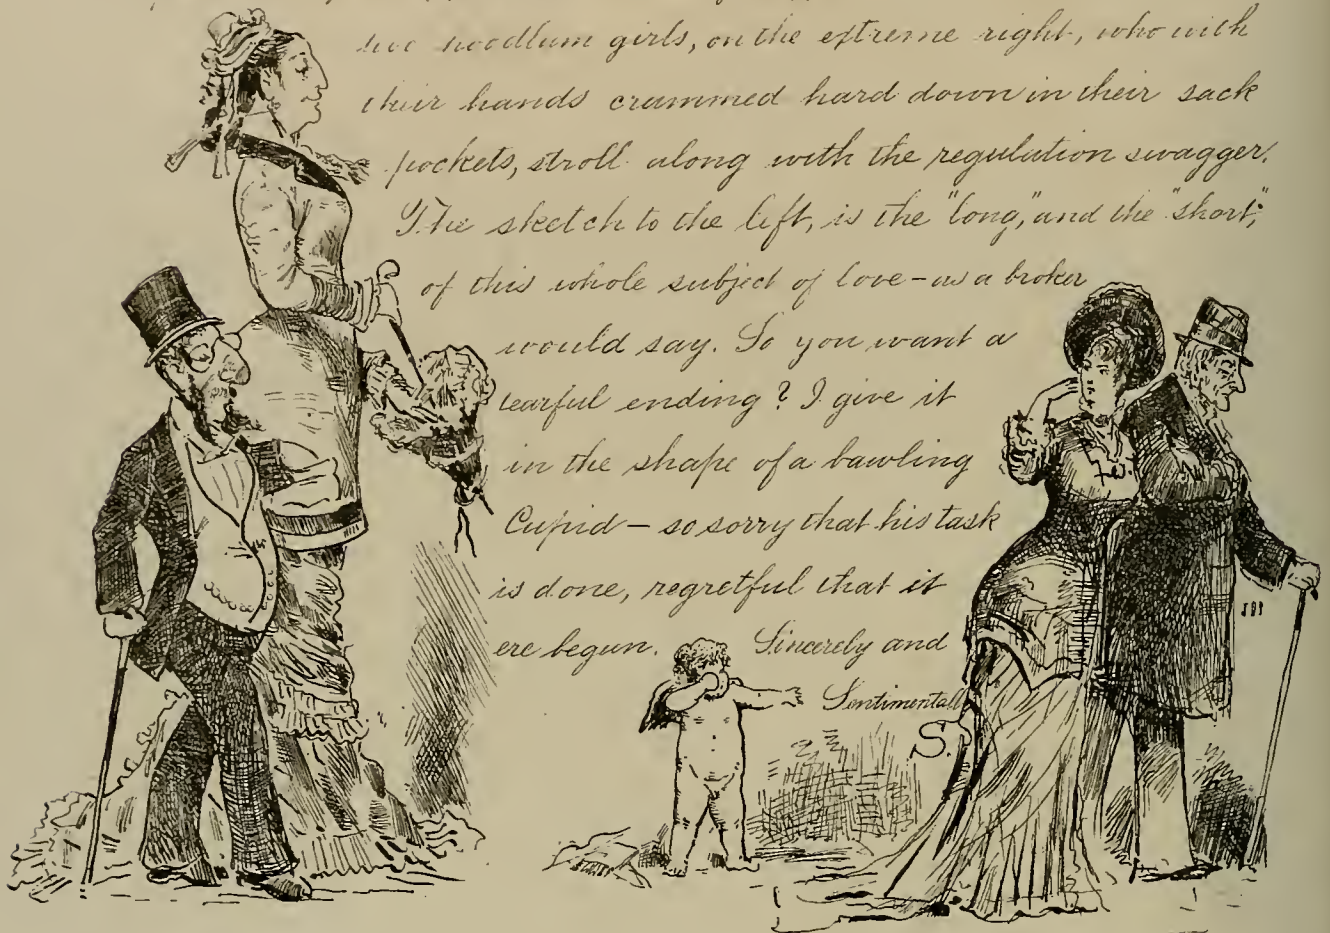 two hoodlum girls, on the extreme right, who with
their hands crammed hard down in their sack
pockets, stroll along with the regulation swagger.
The sketch to the left, is the "long," and the "short,"
of this whole subject of love – as a broker
would say. So you want a
tearful ending? I give it
in the shape of a bawling
Cupid – so sorry that his task
is done, regretful that it
ere begun. Sincerely and
Sentimentall
S.